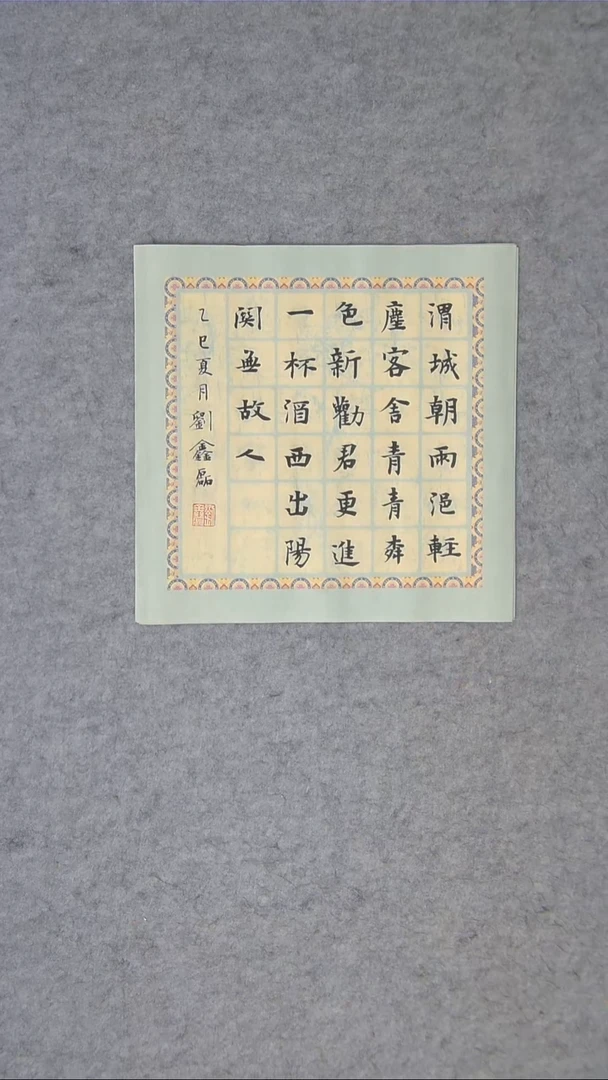 渭城朝雨浥輕
塵客舍青青𣓀
色新勸君更進
一杯酒西出陽
関無故人
乙巳夏月劉鑫磊